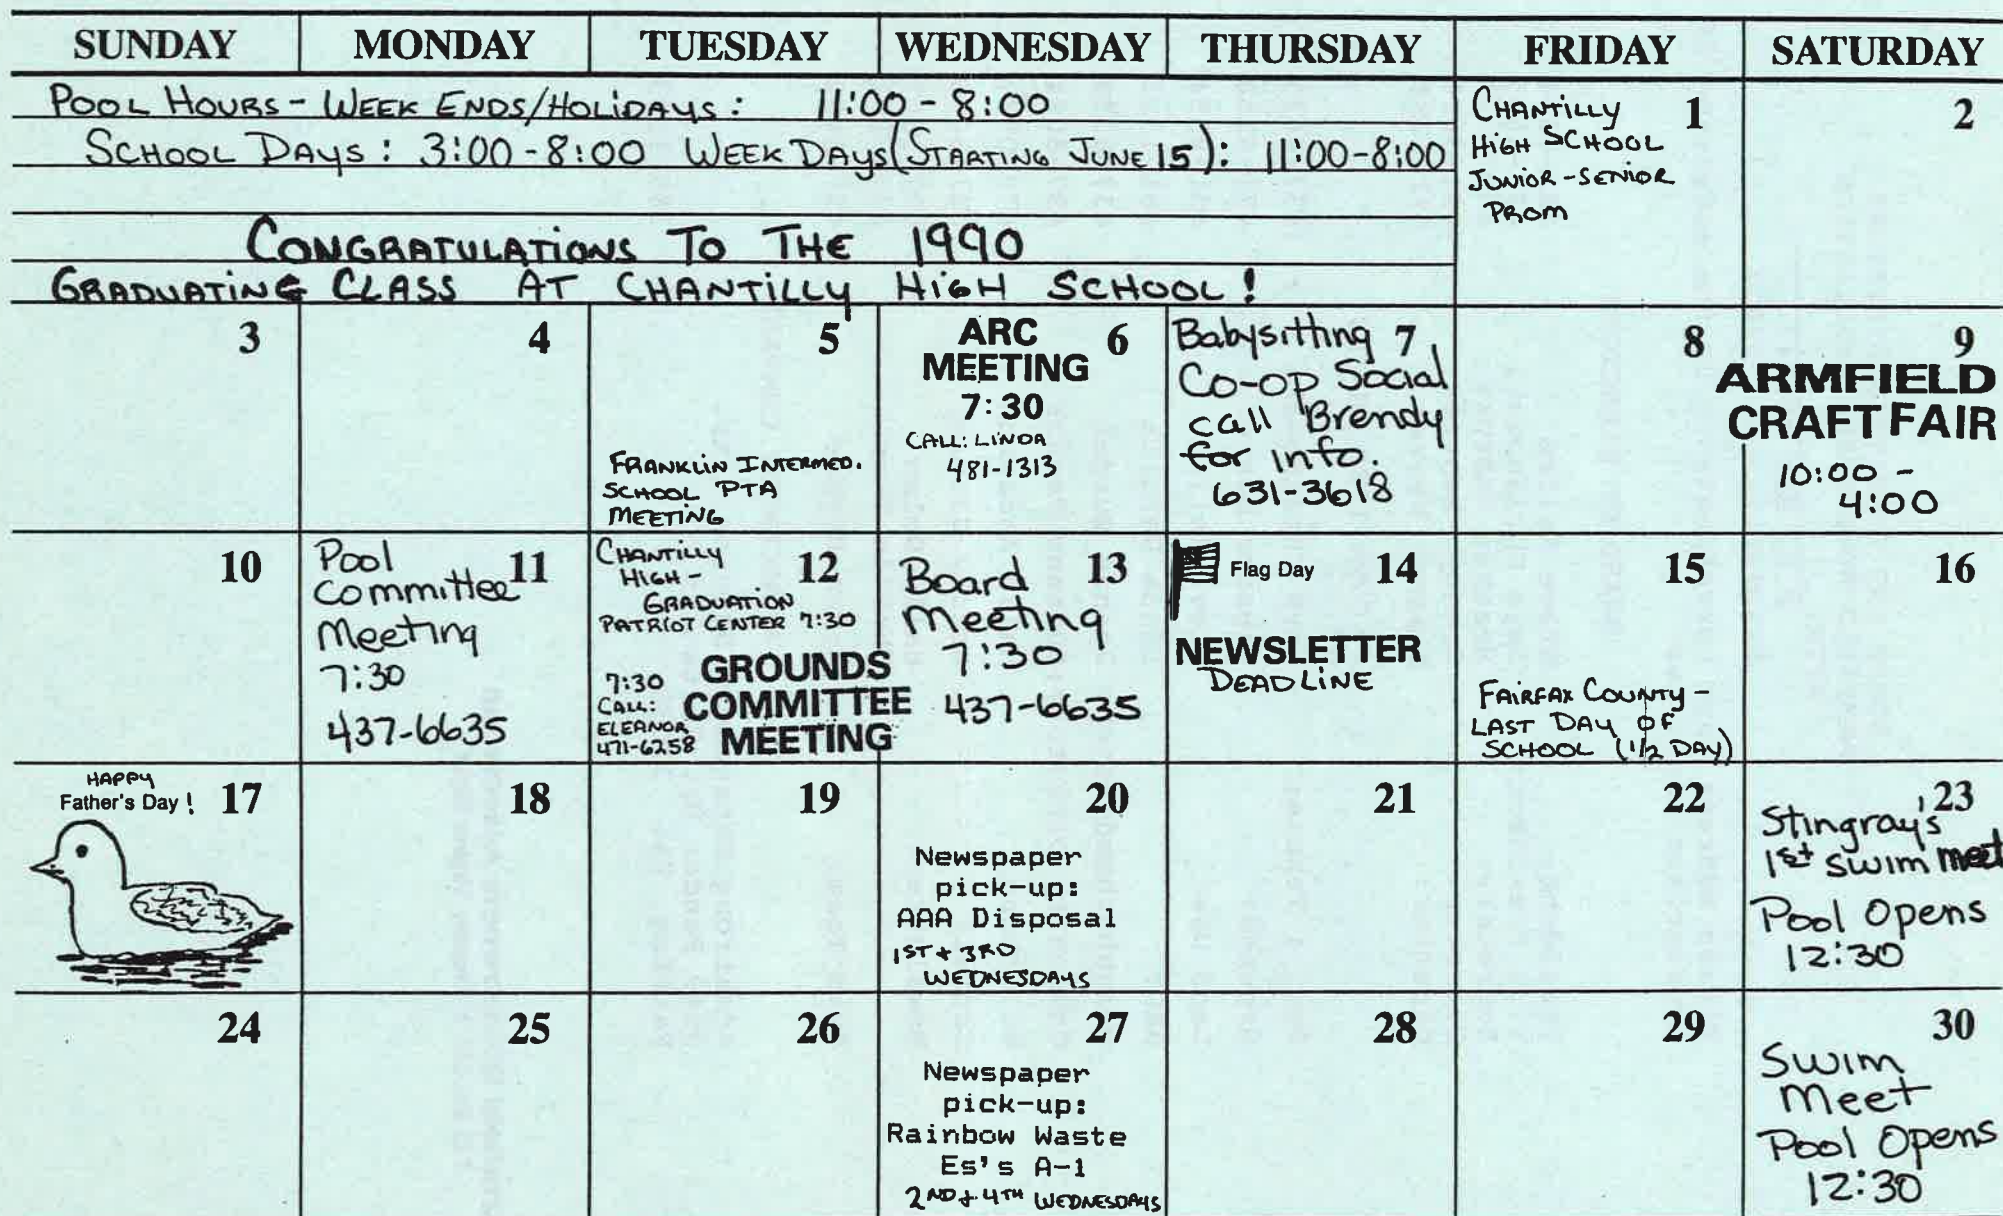 SUNDAY MONDAY TUESDAY WEDNESDAY THURSDAY FRIDAY SATURDAY
POOL HOURS - WEEK ENDS/HOLIDAYS: 11:00 - 8:00
SCHOOL DAYS: 3:00-8:00 WEEK DAYS (STARTING JUNE 15): 11:00-8:00
CONGRATULATIONS TO THE 1990
GRADUATING CLASS AT CHANTILLY HIGH SCHOOL!
CHANTILLY 1
HIGH SCHOOL
JUNIOR-SENIOR
PROM
2
3
4
5
FRANKLIN INTERMED.
SCHOOL PTA
MEETING
ARC 6
MEETING
7:30
CALL: LINDA
481-1313
Babysitting 7
Co-op Social
call Brendy
for info.
631-3618
8
9
ARMFIELD
CRAFT FAIR
10:00 -
4:00
10
Pool 11
Committee
Meeting
7:30
437-6635
CHANTILLY 12
HIGH -
GRADUATION
PATRIOT CENTER 7:30
7:30 GROUNDS
CALL: COMMITTEE
ELEANOR
471-6258 MEETING
Board 13
Meeting
7:30
437-6635
Flag Day 14
NEWSLETTER
DEADLINE
15
FAIRFAX COUNTY -
LAST DAY OF
SCHOOL (1/2 DAY)
16
HAPPY
Father's Day! 17
18
19
20
Newspaper
pick-up:
AAA Disposal
1ST + 3RD
WEDNESDAYS
21
22
23
Stingray's
1st swim meet
Pool Opens
12:30
24
25
26
27
Newspaper
pick-up:
Rainbow Waste
Es's A-1
2ND + 4TH WEDNESDAYS
28
29
30
Swim
Meet
Pool Opens
12:30